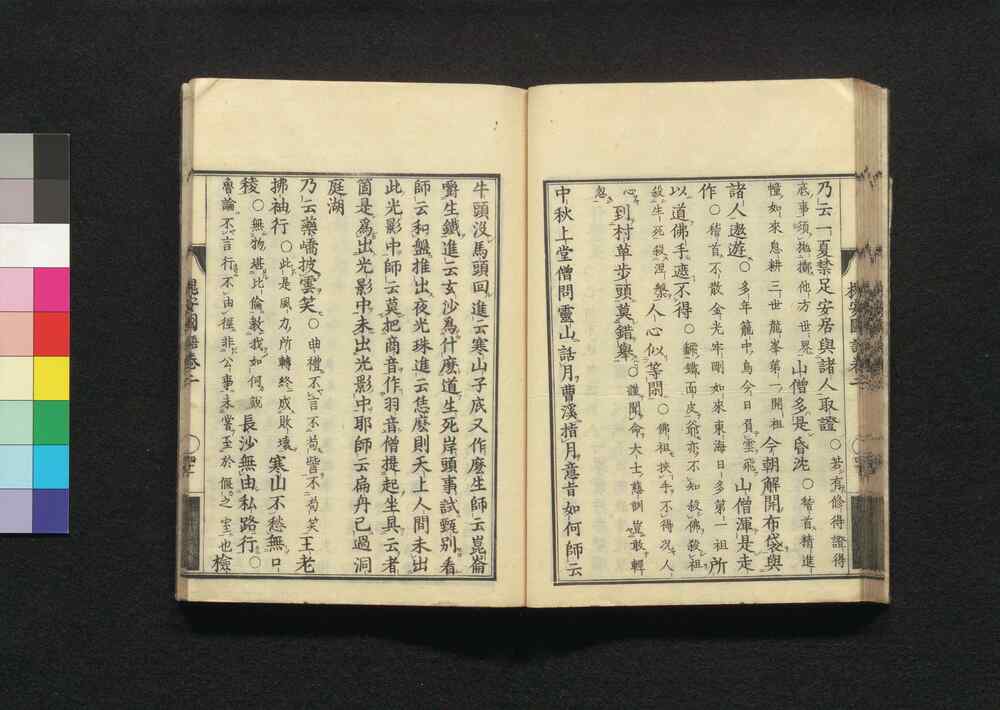 乃云一夏禁足安居與諸人取證○若有修得證得
底事須拋擲他方世界山僧多是昏沈○稽首精進
幢如來息耕三世龍峯第一開祖今朝解開布袋與
諸人遨遊○多年籠中鳥今日負雲飛山僧渾是走
作○稽首不散金光牢剛如來東海日多第一祖所
以道佛手遮不得○鐵面皮爺亦不知殺佛殺祖
殺牛死殺涅槃人心似等閒○佛祖挾手不得況人
心到村草步頭莫錯舉○謹聞命大士慈訓豈敢輕
忽
中秋上堂僧問靈山話月曹溪指月意旨如何師云
牛頭沒馬頭回進云寒山子底又作麼生師云崑崙
嚼生鐵進云玄沙為什麼道生死岸頭事試甄別看
師云和盤推出夜光珠進云恁麼則天上人間未出
此光影中師云莫把商音作羽音僧提起坐具云者
箇是為出光影中未出光影中耶師云扁舟已過洞
庭湖
乃云藥嶠披雲笑○曲禮不言不苟訾不苟笑王老
拂袖行○此是風力所轉終成敗壞寒山不愁無口
稜○無物堪比倫教我如何說長沙無由私路行○
魯論不言行不由徑非公事未嘗至於偃之室也檢
槐安國語卷二